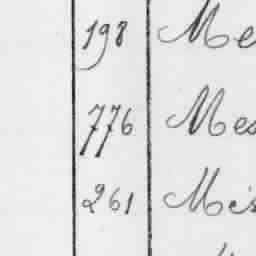 198 Me
776 Mes
261 Mes